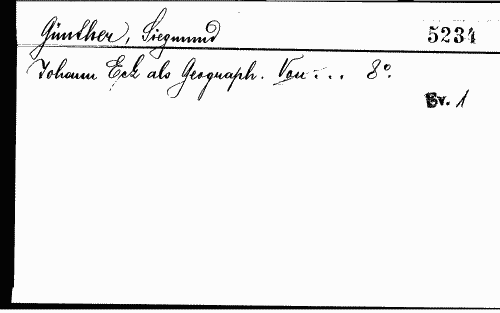 Günther, Siegmund 5234
Johann Eck als Geograph. Von ... 8°.
Bv. 1